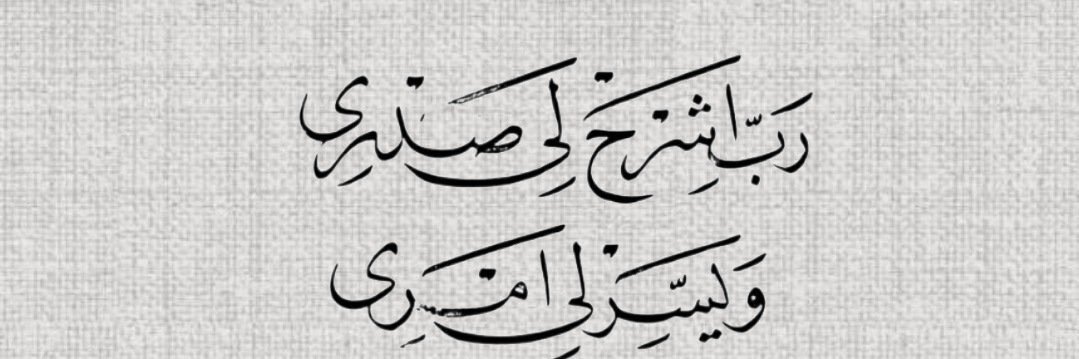 رَبِّ اشْرَحْ لِي صَدْرِى
وَيَسِّرْ لِي أَمْرِى